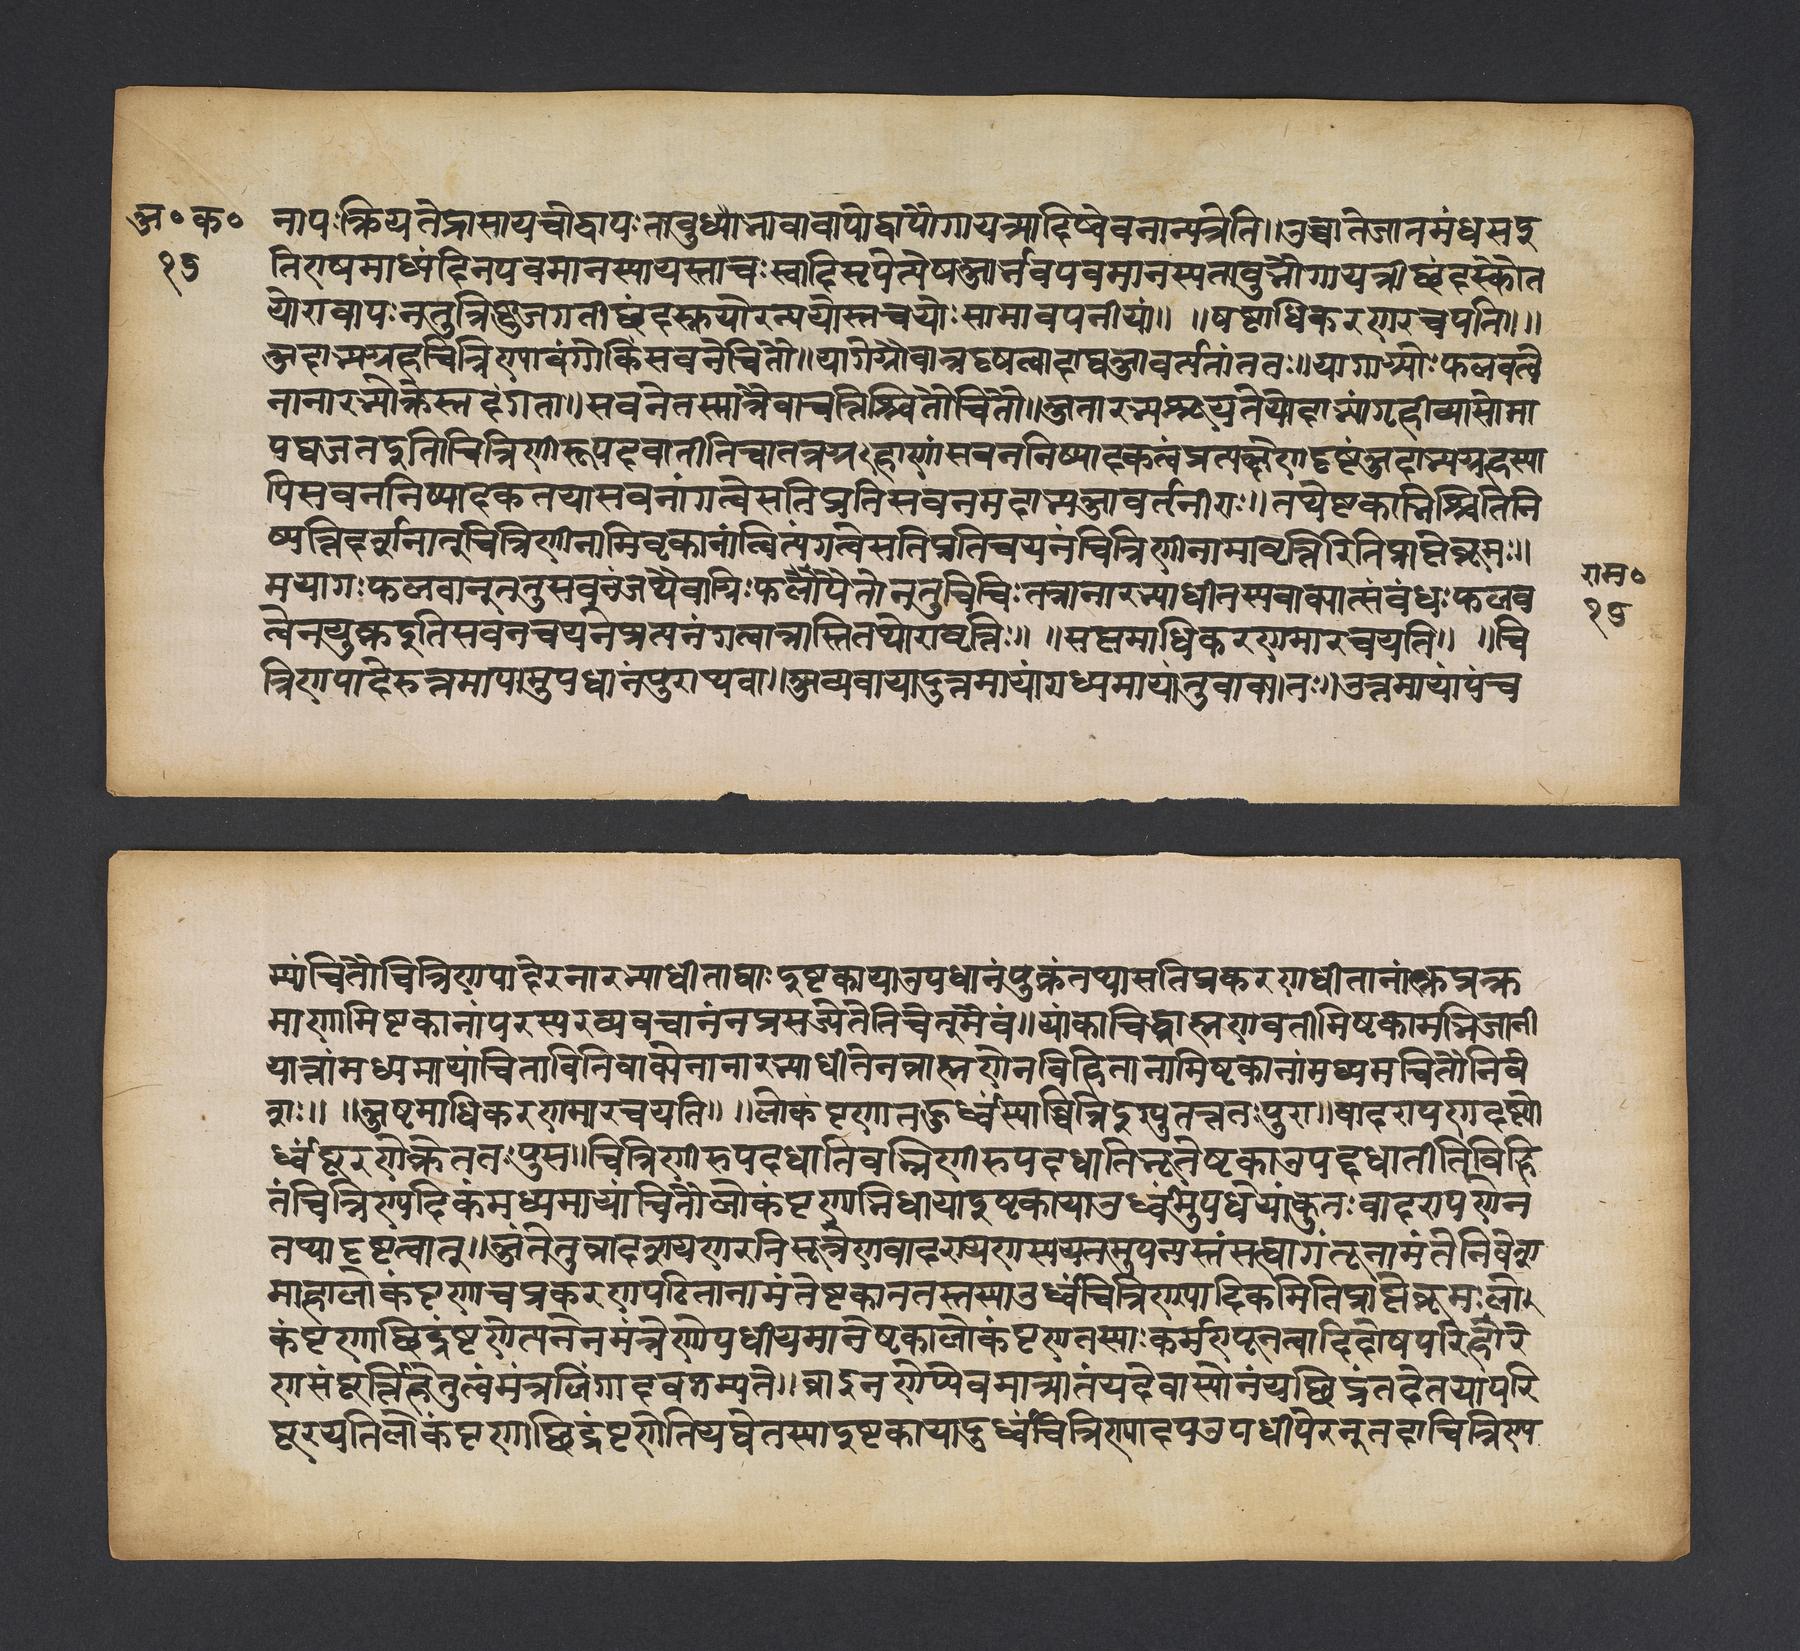 अ॰क॰ नापःक्रियतेद्वासायचोद्वापःतावुभ्यानावावापोद्वापौगायत्र्यादिष्वेवनान्यत्रेति॥उच्चातेजातमंधसइ
१५ तिरुषमाध्यंदिनपवमानस्यायस्तावःस्वादि आर्भवपवमानस्यतावुभौगायत्रीछंदस्कौत
योरावापःनतुत्रिष्टुब्जगतीछंदस्कयोरन्ययोस्तृचयोःसामावपनीयां॥ ॥षष्टाधिकरणारचयति॥॥
अदाभ्यग्रहचित्रिण्यावंगेकिंसवनेचितौ॥यागेग्नौवान्नदृषत्वादाद्यआवर्ततांततः॥यागाग्न्योःफलवत्वे
नानारभ्योक्तेस्तदंगता॥सवनेतस्यनैवावृत्तिश्चितौचितौ॥अनारभ्यश्रूयतेयोदाभ्यंगृहीत्वासोमा
यघजतइतिचित्रिणीरूपदधातीतिचातत्रग्रहाणांसवननिष्पादकत्वंप्रत्यक्षेणदृष्टंअदाभ्यग्रहस्या
पिसवननिष्पादकतयासवनांगत्वेसतिप्रतिसवनमदाभ्यआवर्तनीयः॥तथेष्टकाभिश्चितिनि
ष्पत्तिदर्शनातुचित्रिणीनामिष्टकानांचित्यंगत्वेसतिप्रतिचयनंचित्रिणीनामावृत्तिरितिप्राप्तेब्रूमः॥
मयागःफलवानुनतुसवनंतथैवाग्निःफलोपेतोनतुचितिःतत्रानारभ्याधीतस्यवाक्यात्संबंधःफलव राम॰
त्वेनयुक्तइतिसवनचयनंप्रत्यनंगत्वान्नास्तितयोरावृत्तिः॥ ॥सप्तमाधिकरणमारचयति॥ ॥चि १५
त्रिण्यादेरुत्तमायामुपधानंपुराथवा॥अव्यवायादुत्तमायांमध्यमायांतुवाक्यतः॥उत्तमायांपंच
म्यांचितौचित्रिण्यादेरनारभ्याधीतायाःइष्टकायाउपधानंयुक्तंतथासतिप्रकरणाधीतानांक्लप्तक्र
माणामिष्टकानांपरस्परव्यवधानंनप्रसज्येतेतिचेन्मैवं॥यांकांचिद्ब्राह्मणवतीमिष्टकामभिजानी
यात्तांमध्यमायांचिताविनिवाक्येनानारभ्याधीतेनब्राह्मणेनविहितानामिष्टकानांमध्यमचितौनिवे
शः॥ ॥अष्टमाधिकरणमारचयति॥ ॥लोकंपृणातऊर्ध्वंस्याच्चित्रिण्युततत्रतःपुरा॥बादरायणदृष्टो
र्ध्वंपूरणोक्तेततःपुरा॥चित्रिणीरुपदधातिवज्रिणीरुपदधातिभूतेष्टकाउपदधातीतिविहि
तंचित्रिण्यादिकंमध्यमायांचितौलोकंपृणाभिधायाइष्टकायाऊर्ध्वंमुपधेयांकुतःबादरायणेन
तथादृष्टत्वात्॥अंतेतुबादरायणइतिसूत्रेणबादरायणस्य आगंतूनामंतेनिवेश
माहालोकंपृणाचप्रकरणपठितानामंतेष्टकाततस्तस्याऊर्ध्वंचित्रिण्यादिकमितिप्राप्तेब्रूमःलो
कंपृणाछिद्रंपृणेत्यनेनमंत्रेणोपधीयमानेष्टकालोकंपृणातस्याःकर्मण्यूनत्वादिदोषपरिहारे
णसंपूर्तिहेतुत्वंमंत्रलिंगादवगम्यते॥ब्राह्मणेप्येवमाम्नातंयदेवास्योनंयछिद्रंतदेतयापरि
पूरयतिलोकंपृणाछिद्रंपृणेतियद्येतस्याइष्टकायाऊर्ध्वंचित्रिण्यादयउपधीयेरन्तदाचित्रिण्य